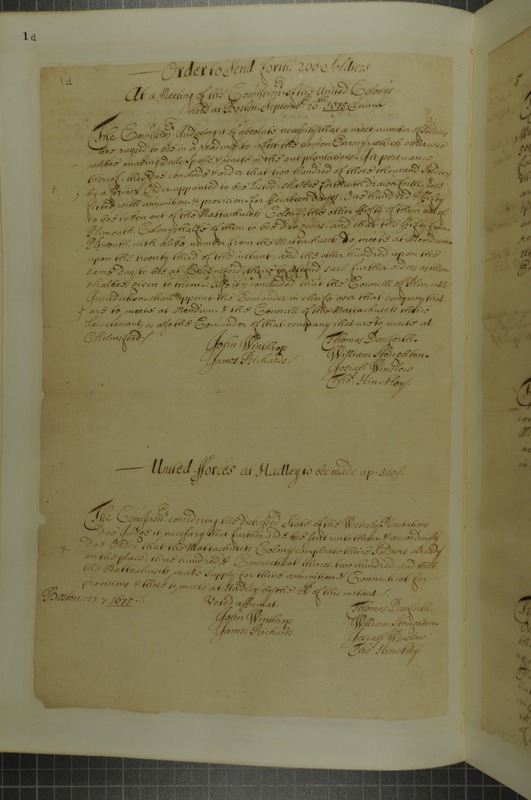 1d
1d
Order to Send forth 200 Soldiers
At a Meeting of the Comissionrs of the United Colonys
held at Boston September 20th 1675
The Comissionrs Judgeing it of absolute necessity that a meet number of Soldiers
are raysed to bee in a readines to infest the comon Enemy, which otherwise
wilbee making dayly spoyle & waste in the out plantations. In persuance
therof, they doe conclude & order that two hundred of those thousand Soldiers
by a former Order appointed to be listed, shalbee forthwith drawn forth, well
fitted with amunition & provision for fourteen dayes, One hundred & fifty
to be raysed out of the Massachusets Colony, the other fifty of them out of
Plimouth Colony, halfe of them to bee Dragoons, and that the fifty from
Plymouth with a like number from the Massachusets do meete at Mendum
upon the twenty third of this instant, and the other hundred upon the
same day to bee at Chelmsford, there to attend such further orders as then
shalbee given to them. Also it is concluded that the Councill of Plimouth
Jurisdiction shall appoint the Comander in cheife over that company that
are to meete at Mendum & the Councill of the Massachusets theire
Lieutenant, as also the Comander of that company that are to meete at
Chelmsford/
John Winthrop
James Richards
Thomas Danforth
William Stoughton
Josiah Winslow
Tho: Hinckley
United fforces at Hadley to bee made up 500/
The Comissionrs considering the distressed State of the Westerly Plantations
doe Judge it necessary that further aide bee sent unto them & accordingly
doe Order that the Massachusets Colony compleate theire Soldiers already
on the place, three hundred & Conecticot theires two hundred, and that
the Massachusets make Supply for theire amunition & Conecticot for
provisions & those to meete at Hadley by the of this instant
Boston 22 7 1675
Voted affirmat
John Winthrop
James Richards
Thomas Danforth
William Stoughton
Josiah Winslow
Tho: Hinckley